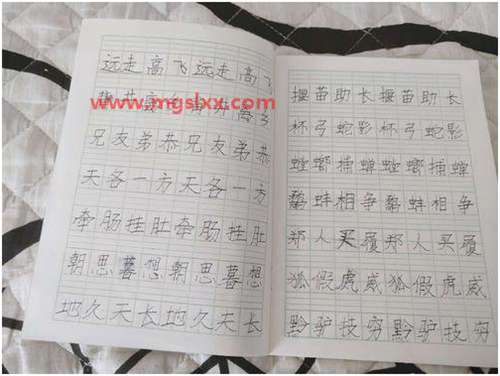 远走高飞远走高飞
www.mgsbxx.com
兄友弟恭兄友弟恭
天各一方天各一方
牵肠挂肚牵肠挂肚
朝思暮想朝思暮想
地久天长地久天长
揠苗助长揠苗助长
杯弓蛇影杯弓蛇影
螳螂捕蝉螳螂捕蝉
鹬蚌相争鹬蚌相争
郑人买履郑人买履
狐假虎威狐假虎威
黔驴技穷黔驴技穷